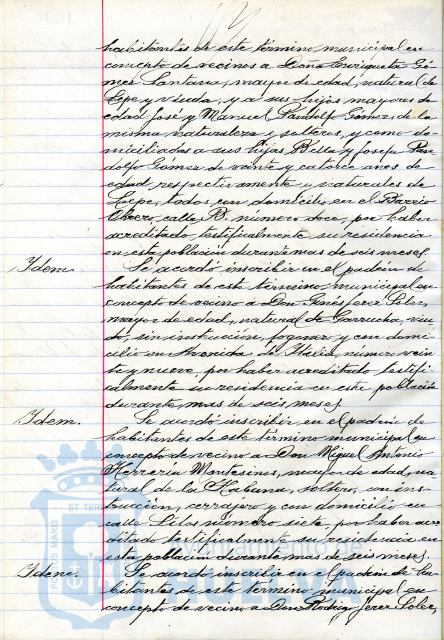 habitantes de este término municipal en
concepto de vecinos a Doña Enriqueta Gó-
mez Santana, mayor de edad, natural de
Lepe y viuda, y a sus hijos mayores de
edad José y Manuel Pandolfo Gómez, de la
misma naturaleza y solteros, y como do-
miciliados a sus hijas Bella y Josefa Pan-
dolfo Gómez de veinte y catorce años de
edad respectivamente y naturales de
Lepe, todos con domicilio en el Barrio
Obrero, calle B. número doce, por haber
acreditado testificalmente su residencia
en esta población durante mas de seis meses.
Idem. Se acordó inscribir en el padrón de
habitantes de este término municipal en
concepto de vecino a Don Ginés Jerez Soler,
mayor de edad, natural de Garrucha, viu-
do, sin instrucción, fogonero y con domi-
cilio en Avenida de Italia, número vein-
te y nueve, por haber acreditado testifi-
calmente su residencia en esta población
durante mas de seis meses.
Idem. Se acordó inscribir en el padrón de
habitantes de este término municipal en
concepto de vecino a Don Miguel Antonio
Herrería Montesinos, mayor de edad, na-
tural de la Habana, soltero, con ins-
trucción, cerrajero y con domicilio en
calle Lilas número siete, por haber acre-
ditado testificalmente su residencia en
esta población durante mas de seis meses.
Idem. Se acordó inscribir en el padrón de ha-
bitantes de este término municipal en
concepto de vecino a Don Rodrigo Jerez Soler,